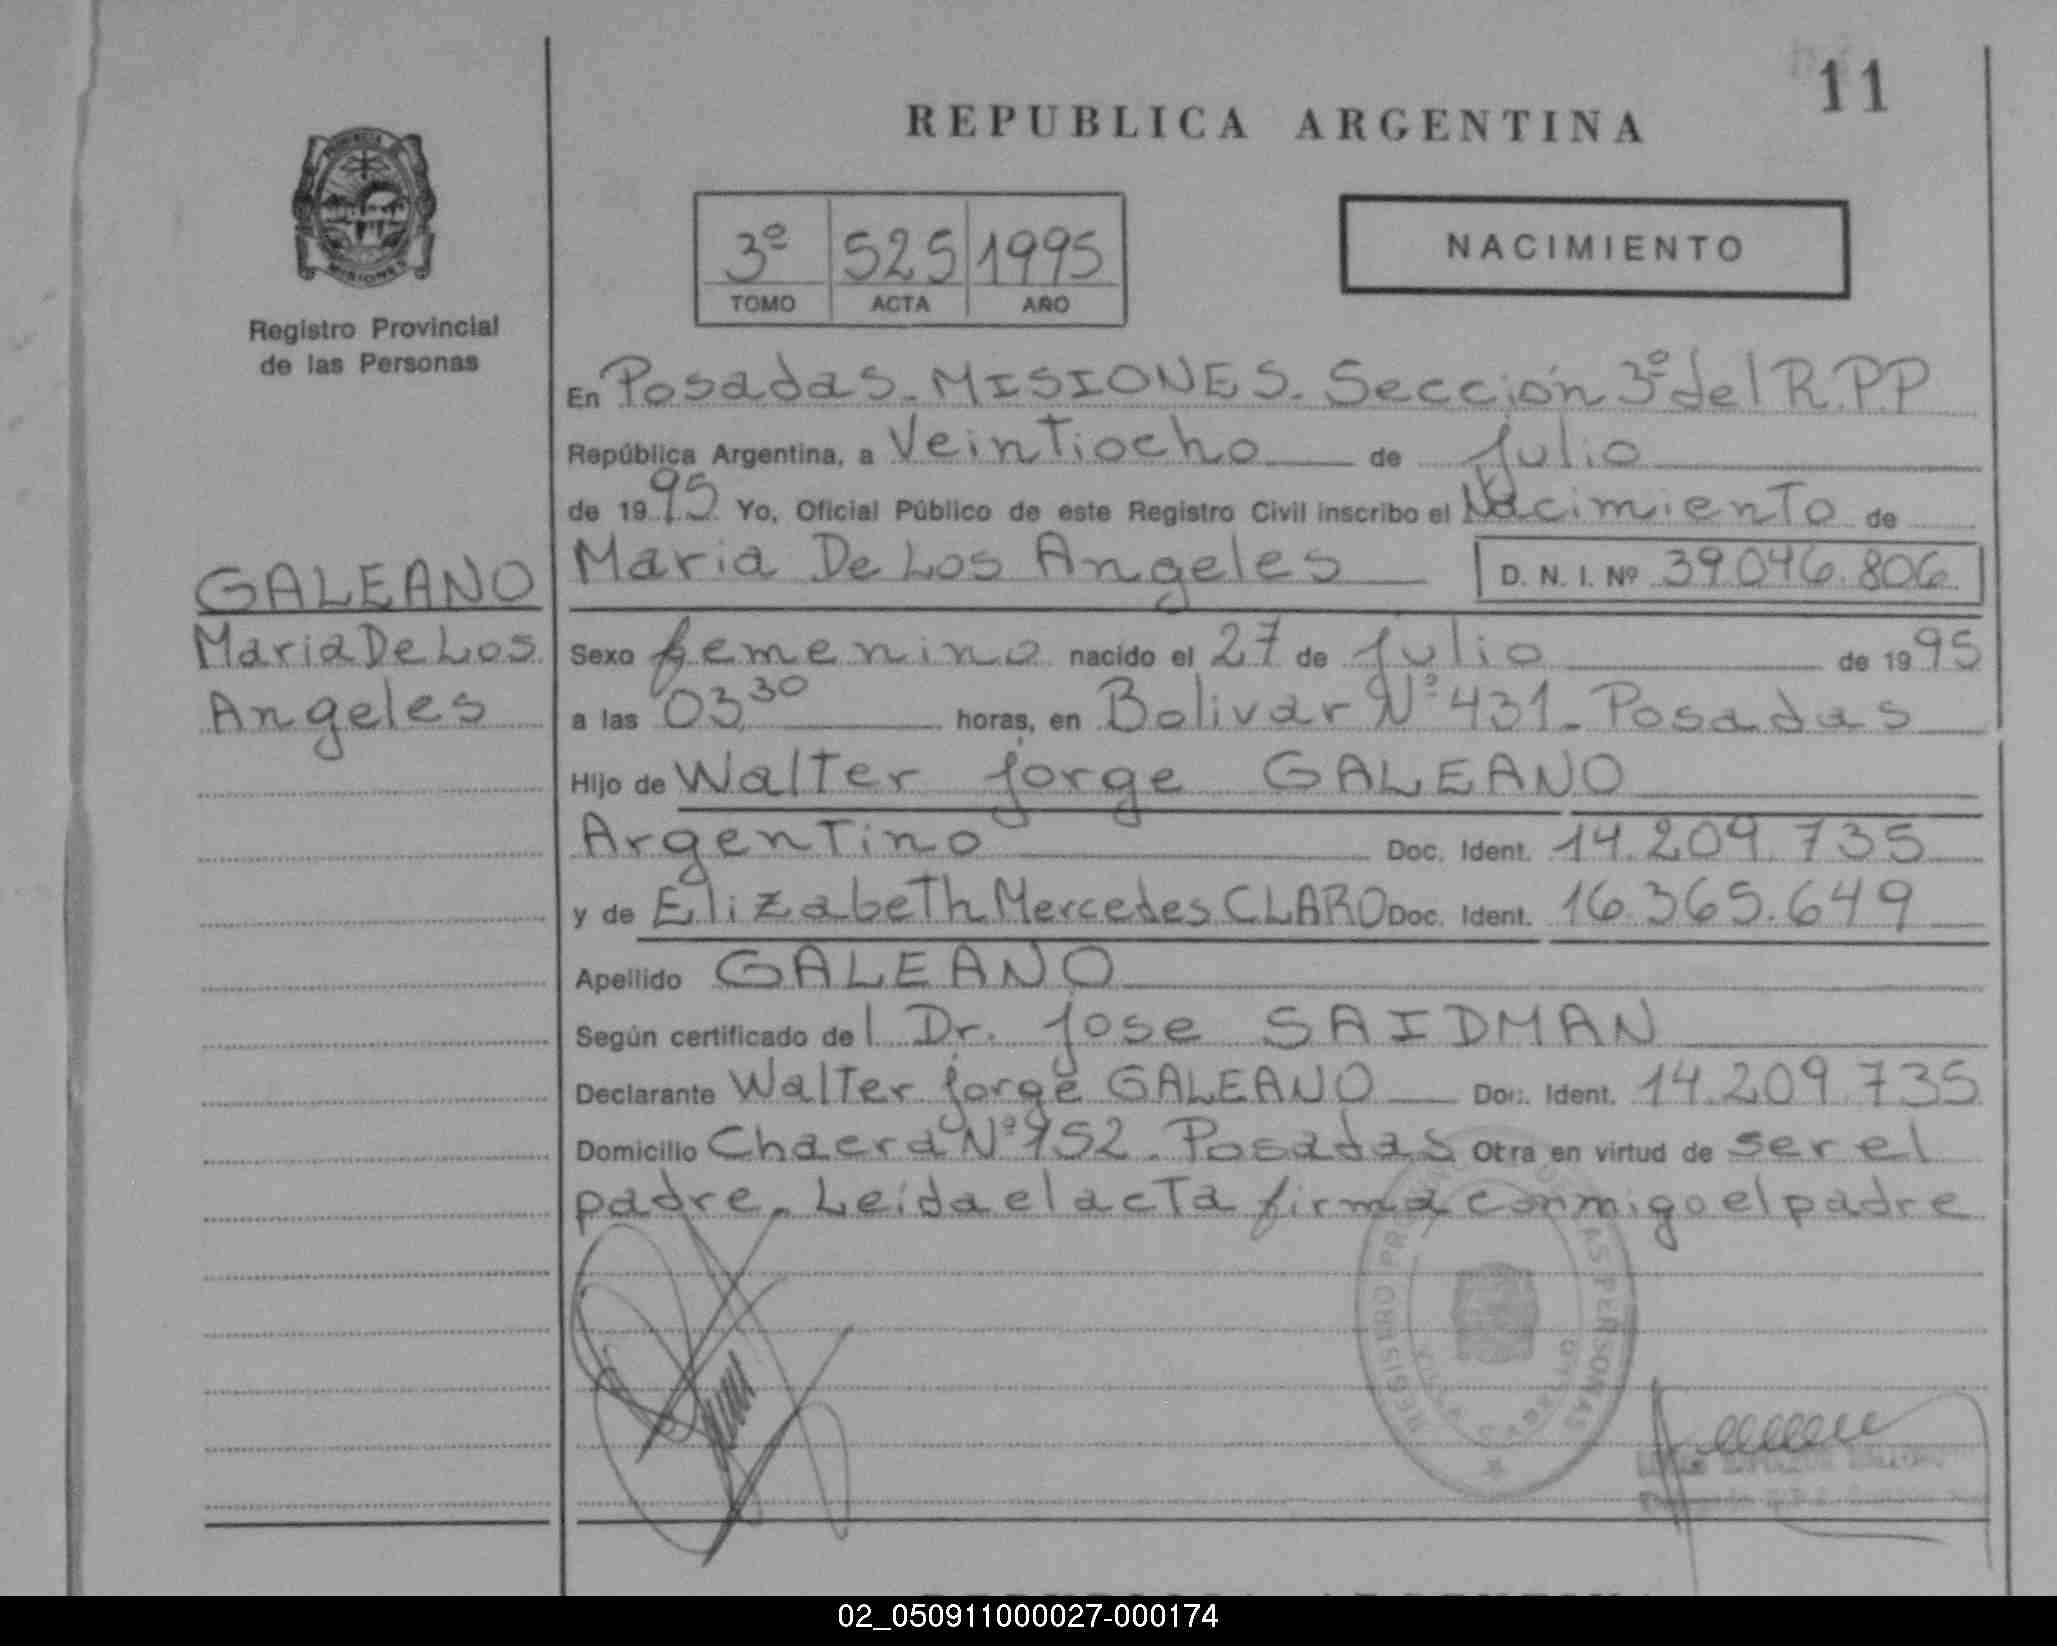 11
REPUBLICA ARGENTINA
3º 525 1995
TOMO ACTA AÑO
NACIMIENTO
Registro Provincial
de las Personas
En Posadas - MISIONES. Sección 3º del R.P.P
República Argentina, a Veintiocho de Julio
de 1995 Yo, Oficial Público de este Registro Civil inscribo el Nacimiento de
Maria De Los Angeles D. N. I. Nº 39.046.806
GALEANO
Maria De Los
Angeles
Sexo femenino nacido el 27 de Julio de 1995
a las 03,30 horas, en Bolivar Nº 431 - Posadas
Hijo de Walter Jorge GALEANO
Argentino Doc. Ident. 14.209.735
y de Elizabeth Mercedes CLARO Doc. Ident. 16.365.649
Apellido GALEANO
Según certificado del Dr. Jose SAIDMAN
Declarante Walter Jorge GALEANO Doc. Ident. 14.209.735
Domicilio Nº 152 - Posadas Otra en virtud de ser el
padre. Leida el acta firma conmigo el padre
REGISTRO PERSONAS
02_050911000027-000174